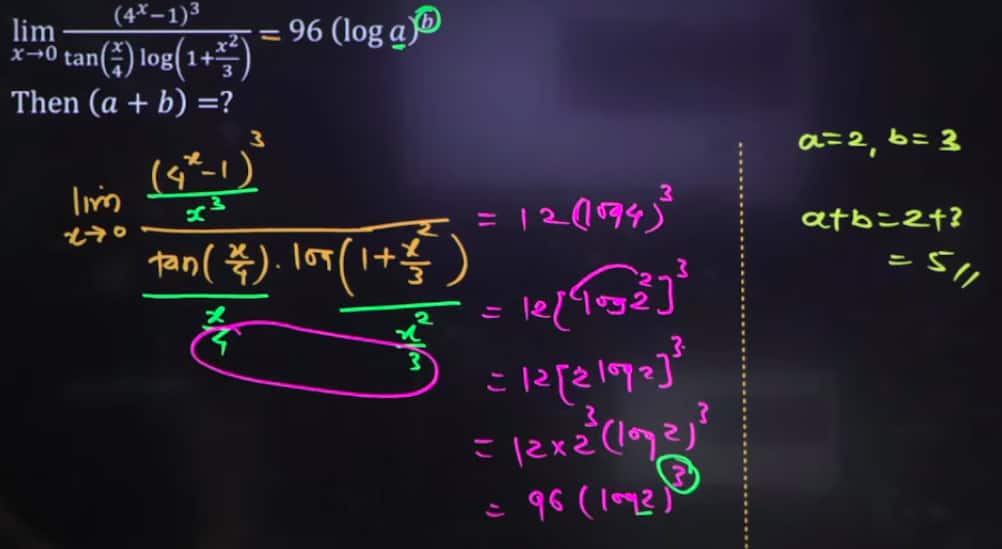 lim x→0 (4ˣ−1)³ / tan(x/4) log(1+x²/3) = 96 (log a)ᵇ
Then (a + b) =?
lim x→0 (4ˣ-1)³/x³ / tan(x/4)/(x/4) · log(1+x²/3)/(x²/3)
= 12(log4)³
= 12[log2²]³
= 12[2log2]³
= 12×2³(log2)³
= 96(log2)³
a=2, b=3
a+b=2+3
= 5//